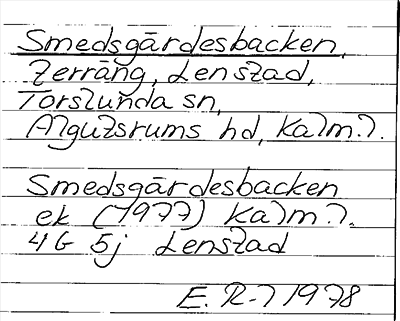 Smedsgärdesbacken,
terräng, Lenstad,
Torslunda sn,
Algutsrums hd, Kalm.l.
Smedsgärdesbacken
ek (1977) Kalm.l.
4G 5j Lenstad
E. R-l 1978